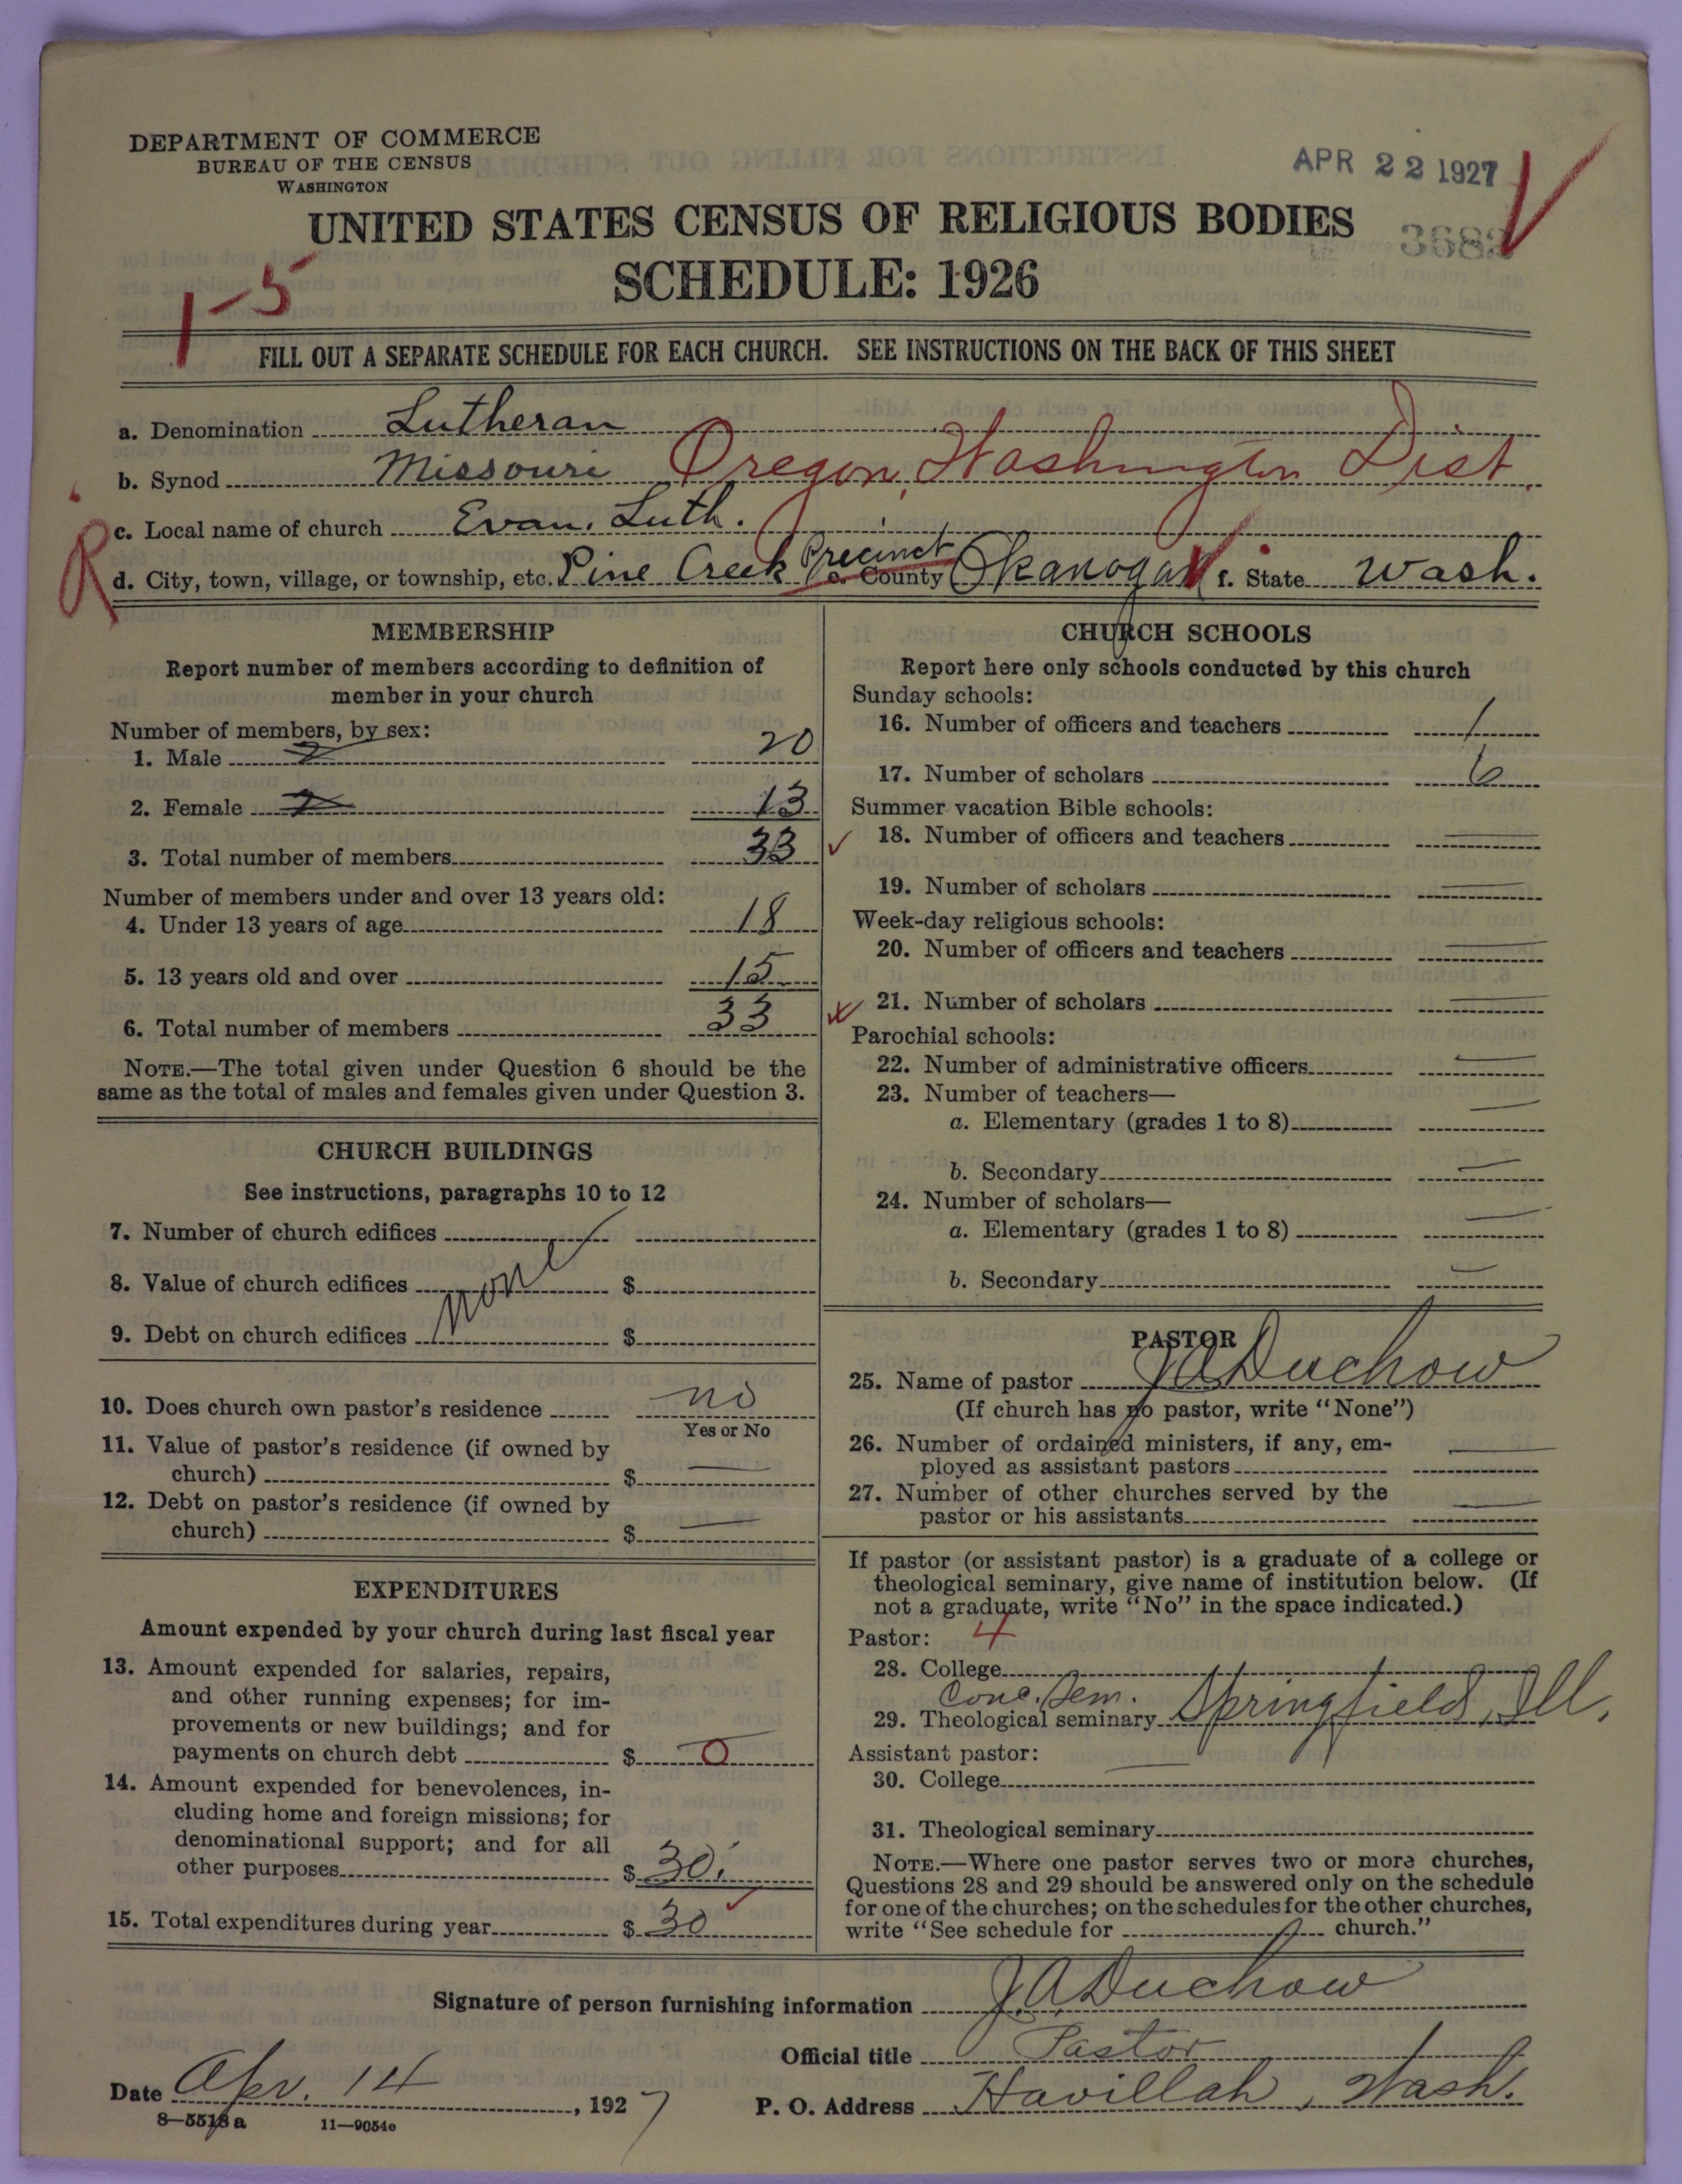 DEPARTMENT OF COMMERCE
BUREAU OF THE CENSUS
WASHINGTON
APR 22 1927
UNITED STATES CENSUS OF RELIGIOUS BODIES
SCHEDULE: 1926
1-5
FILL OUT A SEPARATE SCHEDULE FOR EACH CHURCH. SEE INSTRUCTIONS ON THE BACK OF THIS SHEET
a. Denomination Lutheran
b. Synod Missouri Oregon, Washington Dist.
c. Local name of church Evan. Luth.
R
d. City, town, village, or township, etc. Pine Creek Precinct e. County Okanogan f. State Wash.
MEMBERSHIP
Report number of members according to definition of
member in your church
Number of members, by sex:
1. Male 20
2. Female 13
3. Total number of members 33
Number of members under and over 13 years old:
4. Under 13 years of age 18
5. 13 years old and over 15
6. Total number of members 33
NOTE.—The total given under Question 6 should be the
same as the total of males and females given under Question 3.
CHURCH BUILDINGS
See instructions, paragraphs 10 to 12
7. Number of church edifices
8. Value of church edifices none $
9. Debt on church edifices $
10. Does church own pastor's residence no
Yes or No
11. Value of pastor's residence (if owned by
church) $ —
12. Debt on pastor's residence (if owned by
church) $ —
EXPENDITURES
Amount expended by your church during last fiscal year
13. Amount expended for salaries, repairs,
and other running expenses; for im-
provements or new buildings; and for
payments on church debt $ 0
14. Amount expended for benevolences, in-
cluding home and foreign missions; for
denominational support; and for all
other purposes $ 30.
15. Total expenditures during year $ 30
CHURCH SCHOOLS
Report here only schools conducted by this church
Sunday schools:
16. Number of officers and teachers 1
17. Number of scholars 6
Summer vacation Bible schools:
18. Number of officers and teachers —
19. Number of scholars —
Week-day religious schools:
20. Number of officers and teachers —
21. Number of scholars —
Parochial schools:
22. Number of administrative officers —
23. Number of teachers—
a. Elementary (grades 1 to 8) —
b. Secondary —
24. Number of scholars—
a. Elementary (grades 1 to 8) —
b. Secondary —
PASTOR
25. Name of pastor J A Duchow
(If church has no pastor, write "None")
26. Number of ordained ministers, if any, em-
ployed as assistant pastors —
27. Number of other churches served by the
pastor or his assistants —
If pastor (or assistant pastor) is a graduate of a college or
theological seminary, give name of institution below. (If
not a graduate, write "No" in the space indicated.)
Pastor: 4
28. College
Conc. Sem.
29. Theological seminary Springfield, Ill.
Assistant pastor: —
30. College
31. Theological seminary
NOTE.—Where one pastor serves two or more churches,
Questions 28 and 29 should be answered only on the schedule
for one of the churches; on the schedules for the other churches,
write "See schedule for church."
Signature of person furnishing information J. A. Duchow
Official title Pastor
Date Apr. 14, 1927
P. O. Address Havillah, Wash.
8—5518 a 11—9054c